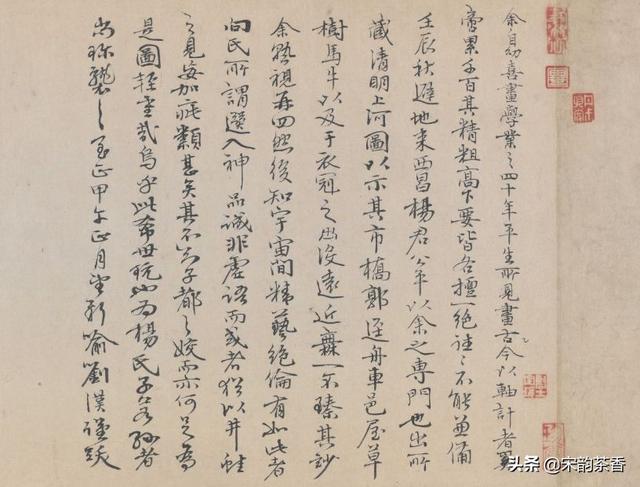 余自幼喜畫學業之四十年平生所見畫古今以軸計者奚
啻累千百其精粗高下要皆各擅一絕往々不能兼備
壬辰秋避地来西昌楊君公平以余之專門也出所
藏清明上河圖以示其市橋郭逕舟車邑屋草
樹馬牛以及于衣冠之出沒遠近靡一不臻其妙
余熟視再四然後知宇宙間精藝絕倫有如此者
向氏所謂選入神品誠非虛語而或者猶以井蛙
之見妄加疵類甚矣其不知子都之姣而亦何足為
是圖輕重哉烏乎此希世玩也為楊氏子若孫者
尚珎襲之至正甲午正月望新喻劉漢謹跋
头条 @宋韵茶香